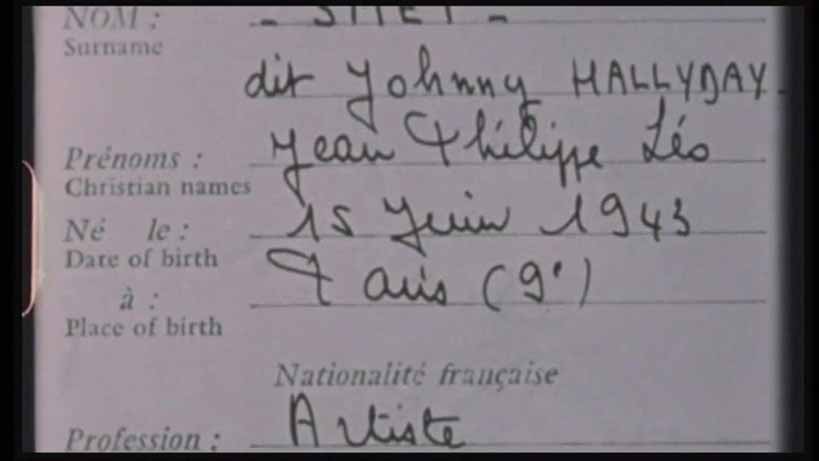 NOM : - SMET -
Surname
dit Johnny HALLYDAY.
Prénoms : Jean Philippe Léo
Christian names
Né le : 15 Juin 1943
Date of birth
à : Paris (9e)
Place of birth
Nationalité française
Profession : Artiste